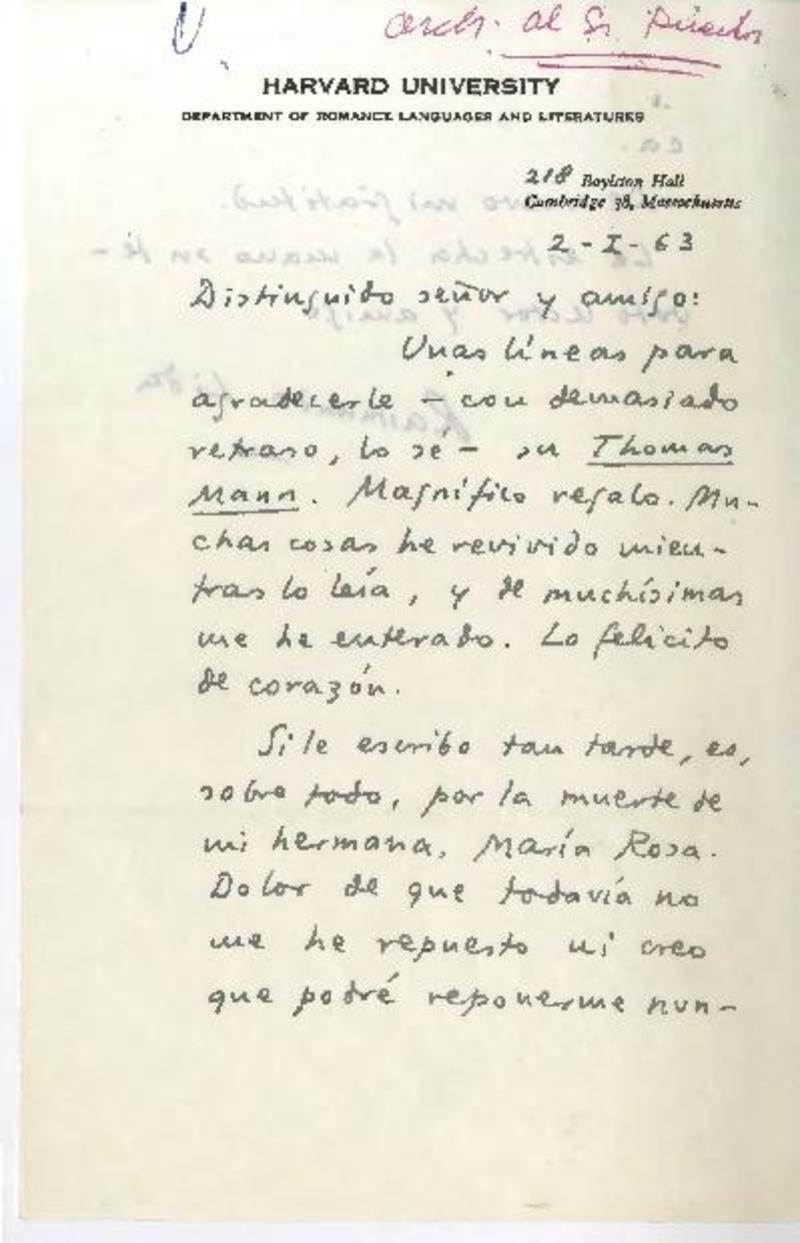 al Sr. Director
HARVARD UNIVERSITY
DEPARTMENT OF ROMANCE LANGUAGES AND LITERATURES
218 Boylston Hall
Cambridge 38, Massachusetts
2-I-63
Distinguido señor y amigo:
Unas líneas para
agradecerle – con demasiado
retraso, lo sé – su Thomas
Mann. Magnífico regalo. Mu-
chas cosas he revivido mien-
tras lo leía, y de muchísimas
me he enterado. Lo felicito
de corazón.
Si le escribo tan tarde, es,
sobre todo, por la muerte de
mi hermana, María Rosa.
Dolor de que todavía no
me he repuesto ni creo
que podré reponerme nun-